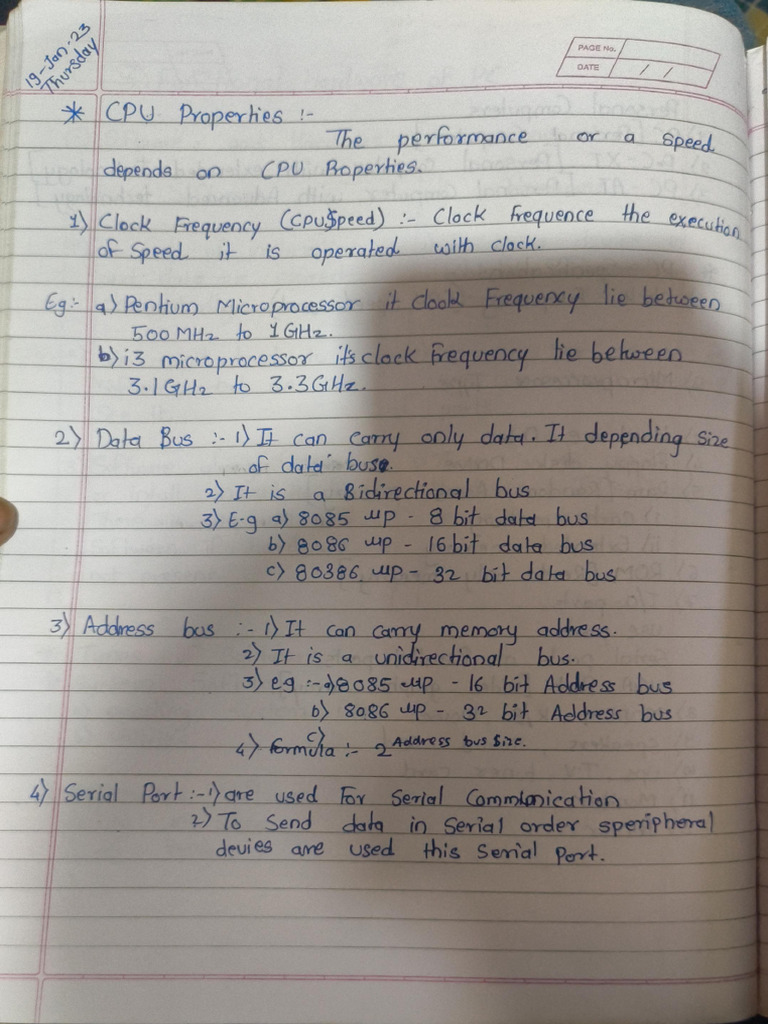 19-Jan-23
Thursday
PAGE No.
DATE / /
* CPU Properties :-
The performance or a speed
depends on CPU Properties.
1) Clock Frequency (CPU Speed) :- Clock Frequence the execution
of Speed it is operated with clock.
Eg:- a) Pentium Microprocessor it Clock Frequency lie between
500 MHz to 1 GHz.
b) i3 microprocessor its clock frequency lie between
3.1 GHz to 3.3 GHz.
2) Data Bus :- 1) It can carry only data. It depending Size
of data buse.
2) It is a Bidirectional bus
3) E-g a) 8085 μp - 8 bit data bus
b) 8086 μp - 16 bit data bus
c) 80386 μp - 32 bit data bus
3) Address bus :- 1) It can carry memory address.
2) It is a unidirectional bus.
3) eg :- a) 8085 μp - 16 bit Address bus
b) 8086 μp - 32 bit Address bus
c)
4) formula :- 2 Address bus Size.
4) Serial Port :- 1) are used For Serial Commonication
2) To Send data in Serial order speripheral
devies are used this Serial Port.